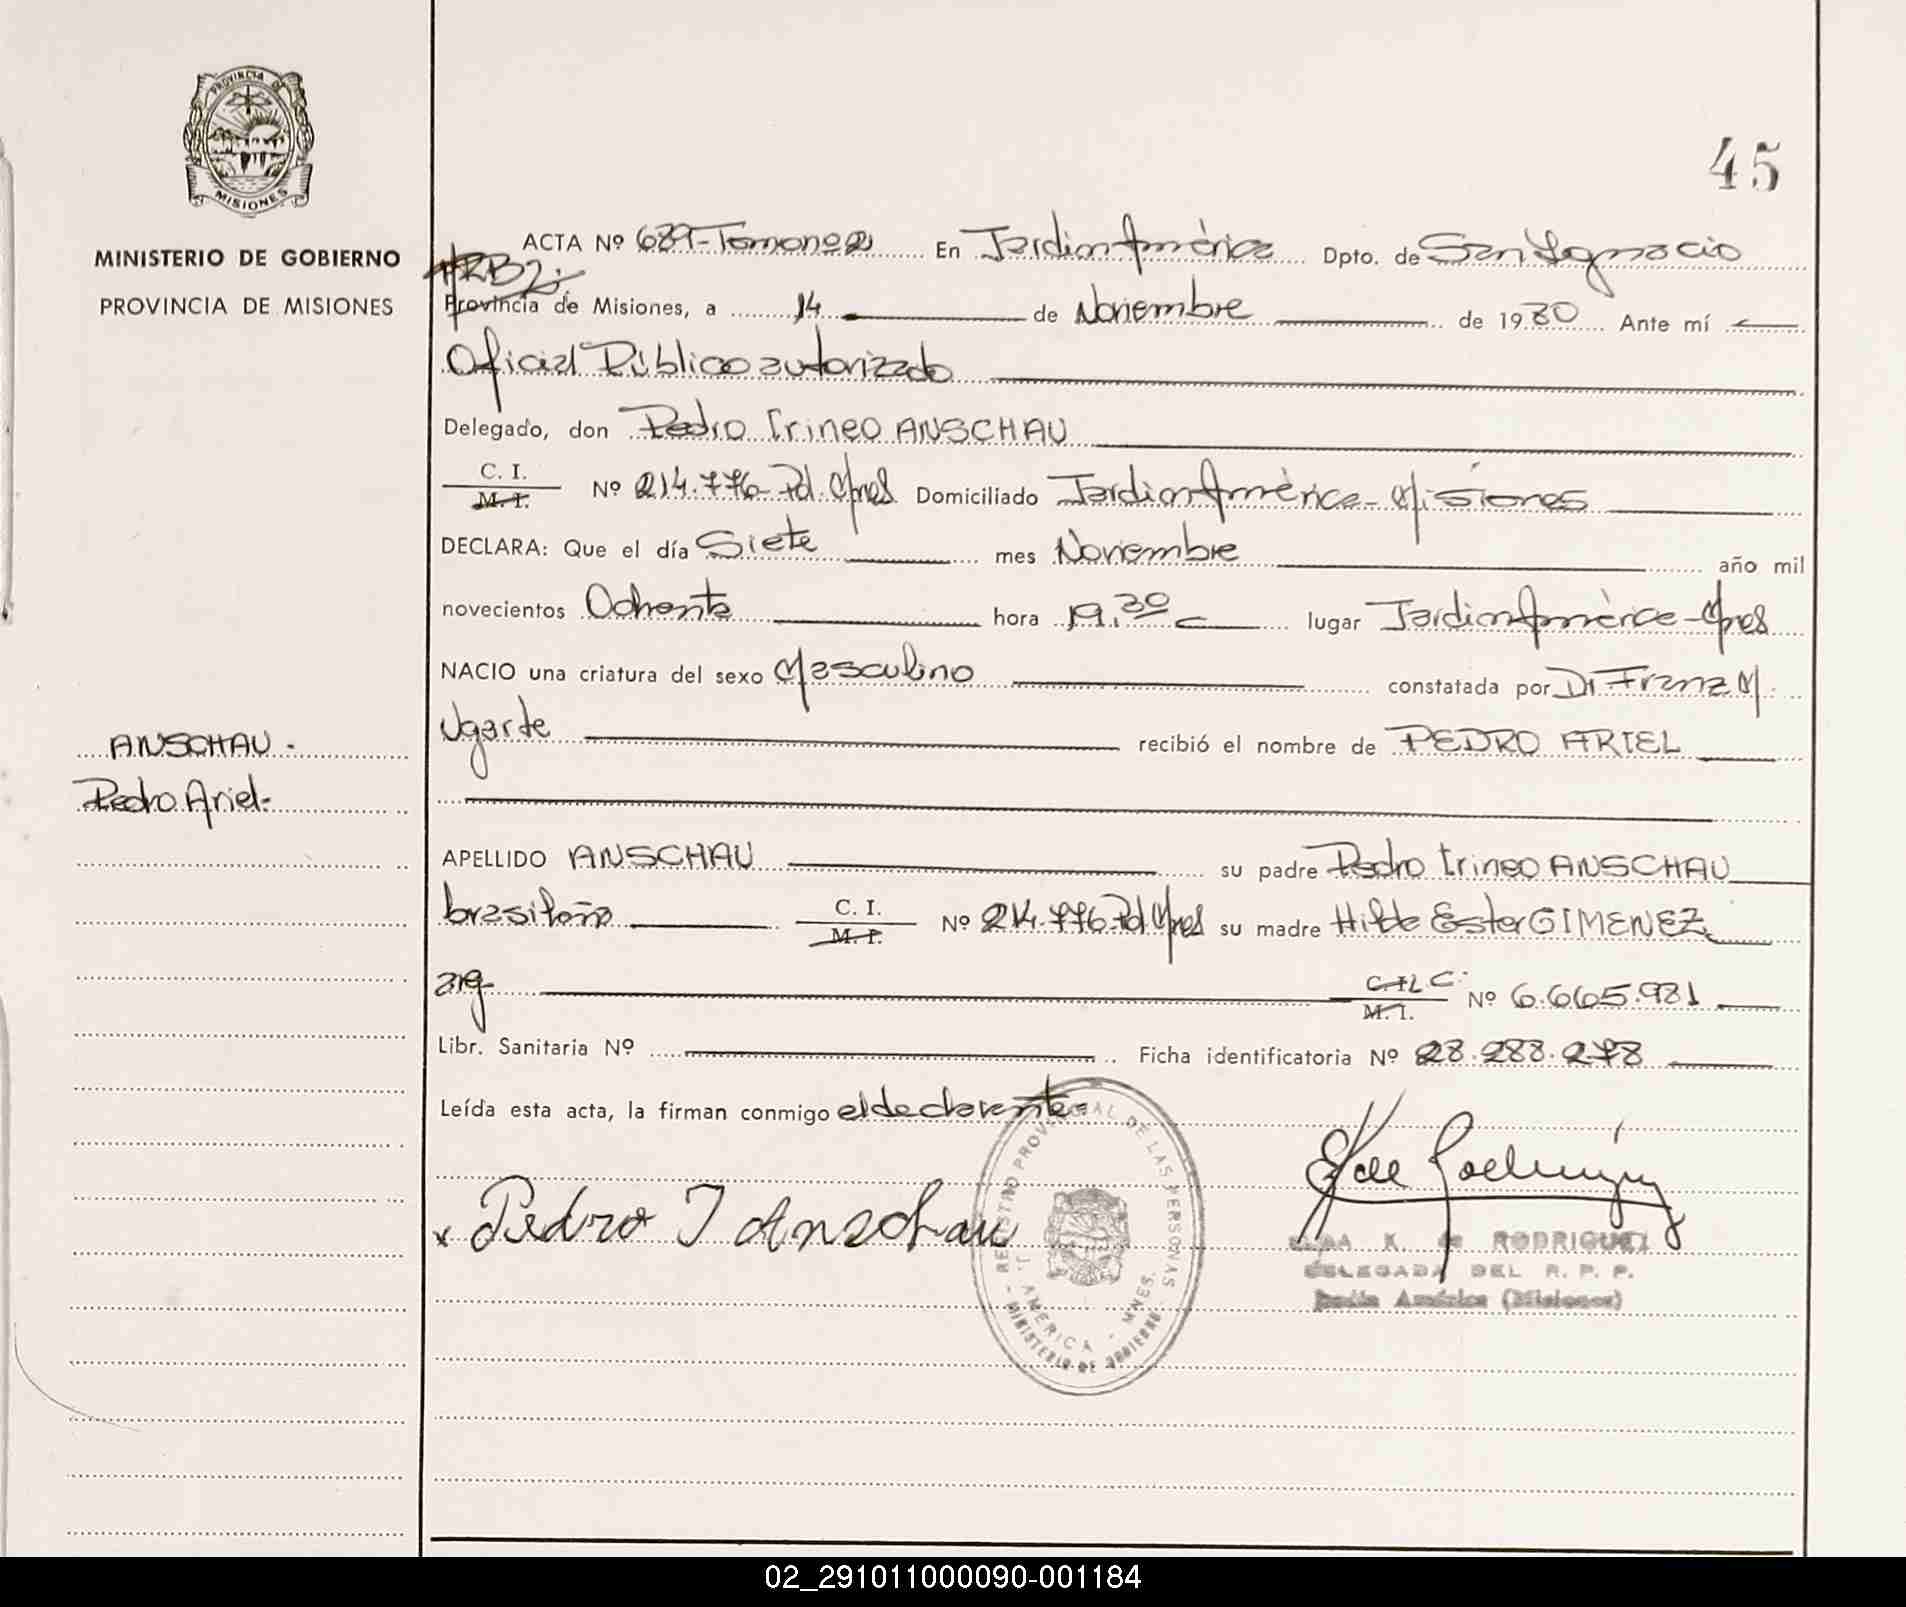 PROVINCIA DE
MISIONES
MINISTERIO DE GOBIERNO
PROVINCIA DE MISIONES
45
ACTA Nº 689-Tomo nº2 En Jardin América Dpto. de San Ignacio
Provincia de Misiones, a 14 de Noviembre de 1980 Ante mí
Oficial Público autorizado
Delegado, don Pedro Irineo ANSCHAU
C. I.
M. I. Nº 214.776-Pd.Mnes Domiciliado Jardin América-Misiones
DECLARA: Que el día Siete mes Noviembre año mil
novecientos Ochenta hora 19.30 lugar Jardin América-Mnes
NACIO una criatura del sexo Masculino constatada por Dr Franz M.
Ugarte recibió el nombre de PEDRO ARIEL
ANSCHAU.-
Pedro Ariel.-
APELLIDO ANSCHAU su padre Pedro Irineo ANSCHAU
brasileña C. I.
M. I. Nº 214.776-Pd.Mnes su madre Hilda Ester GIMENEZ
arg C. I. L. C.
M. I. Nº 6.665.981
Libr. Sanitaria Nº Ficha identificatoria Nº 28.288.278
Leída esta acta, la firman conmigo el declarante.-
x Pedro I Anschau
REGISTRO PROVINCIAL DE LAS PERSONAS
J. AMERICA - MNES.
- MINISTERIO DE GOBIERNO
K. de RODRIGUEZ
DELEGADA DEL R. P. P.
Jardín América (Misiones)
02_291011000090-001184